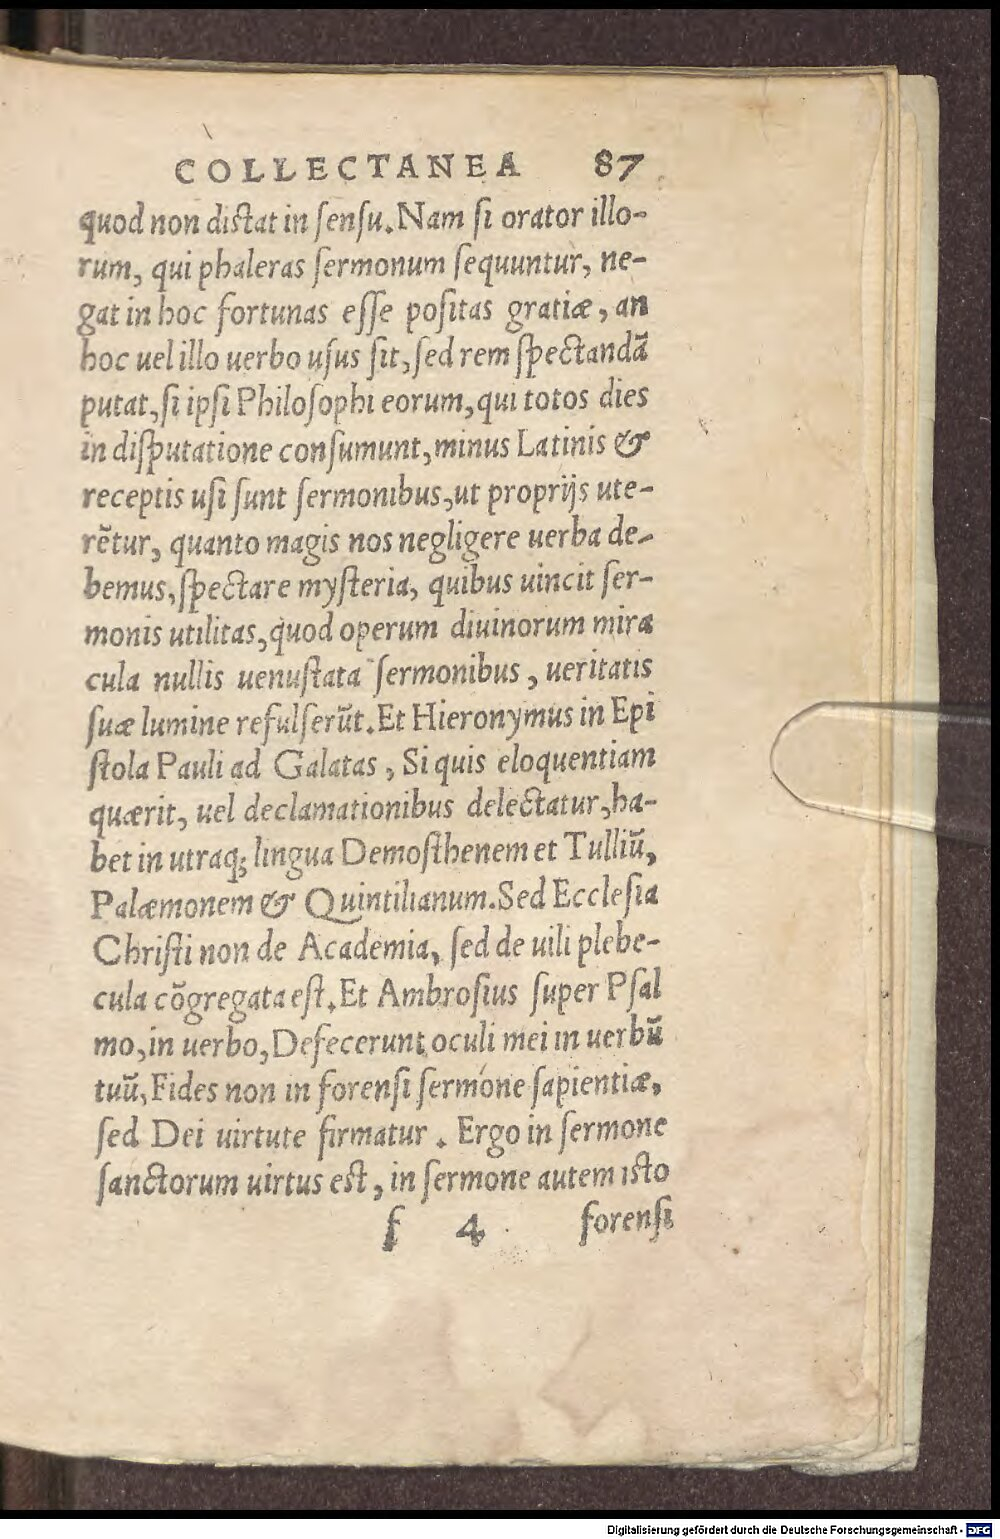 COLLECTANEA 87
quod non distat in sensu. Nam si orator illo-
rum, qui phaleras sermonum sequuntur, ne-
gat in hoc fortunas esse positas gratiæ, an
hoc uel illo uerbo usus sit, sed rem spectandã
putat, si ipsi Philosophi eorum, qui totos dies
in disputatione consumunt, minus Latinis &
receptis usi sunt sermonibus, ut proprijs ute-
rẽtur, quanto magis nos negligere uerba de-
bemus, spectare mysteria, quibus uincit ser-
monis utilitas, quod operum diuinorum mira
cula nullis uenustata sermonibus, ueritatis
suæ lumine refulserũt. Et Hieronymus in Epi
stola Pauli ad Galatas, Si quis eloquentiam
quærit, uel declamationibus delectatur, ha-
bet in utraq; lingua Demosthenem et Tulliũ,
Palæmonem & Quintilianum. Sed Ecclesia
Christi non de Academia, sed de uili plebe-
cula cõgregata est. Et Ambrosius super Psal
mo, in uerbo, Defecerunt oculi mei in uerbũ
tuũ, Fides non in forensi sermone sapientiæ,
sed Dei uirtute firmatur. Ergo in sermone
sanctorum uirtus est, in sermone autem isto
f 4 forensi
Digitalisierung gefördert durch die Deutsche Forschungsgemeinschaft - DFG